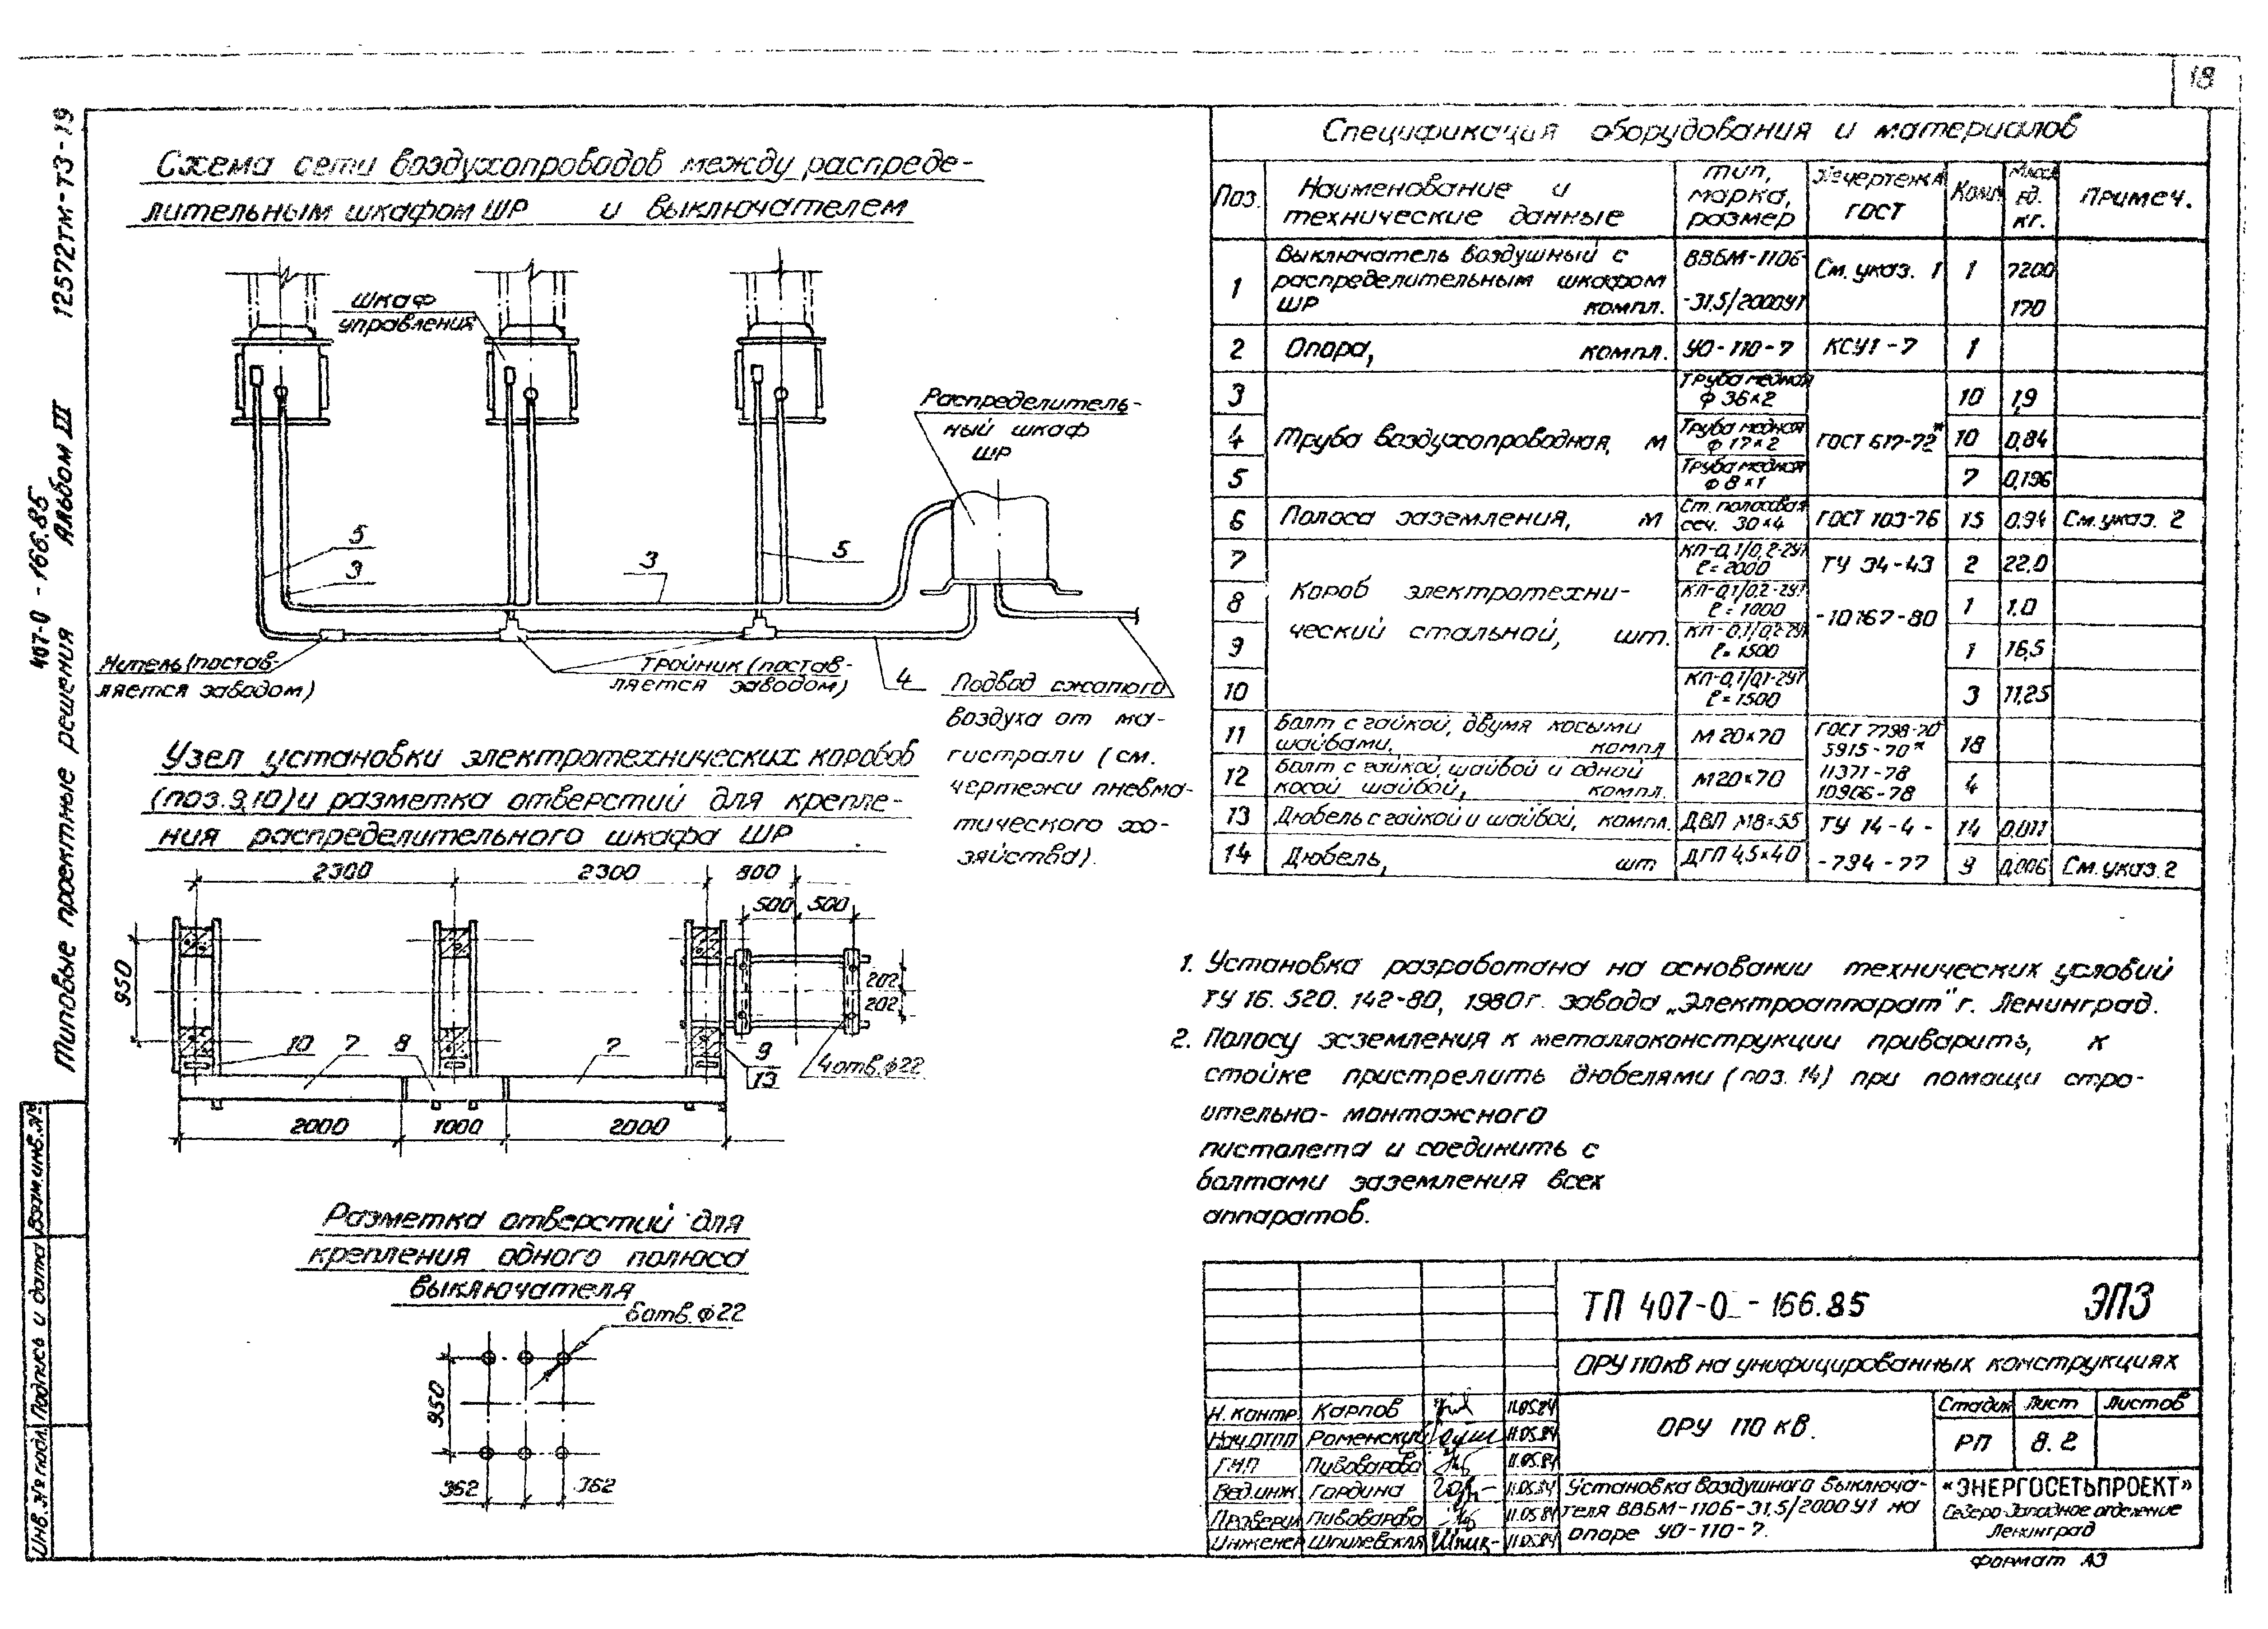 18
12572тм-т3-19
407-0-166.85
Альбом III
Типовые проектные решения
Инв.№ подл. Подпись и дата Взам.инв.№
Схема сети воздухопроводов между распреде-
лительным шкафом ШР и выключателем
Шкаф
управления
Распределитель-
ный шкаф
ШР
5
3
3
5
(постав-
ляется заводом)
Тройник (постав-
ляется заводом)
4
Подвод сжатого
воздуха от ма-
гистрали (см.
чертежи пневма-
тического хо-
зяйства).
Узел установки электротехнических коробов
(поз.9,10) и разметка отверстий для крепле-
ния распределительного шкафа ШР
2300 2300 800
500 500
950
202
202
10 7 8 7 9
13
4отв.ф22
2000 1000 2000
Разметка отверстий для
крепления одного полюса
выключателя
6отв.ф22
950
362 362
Спецификация оборудования и материалов
Поз. Наименование и технические данные Тип, марка, размер № чертежа ГОСТ Кол. Масса ед. кг. Примеч.
1 Выключатель воздушный с распределительным шкафом ШР компл. ВВБМ-110Б-31,5/2000У1 См. указ. 1 1 7200 170
2 Опора, компл. УО-110-7 КСУ1-7 1
3 Труба медная ф 36×2 10 1,9
4 Труба воздухопроводная, м Труба медная ф 17×2 ГОСТ 617-72* 10 0,84
5 Труба медная ф 8×1 7 0,196
6 Полоса заземления, м Ст. полосовая сеч. 30×4 ГОСТ 103-76 15 0.94 См. указ. 2
7 КП-0,1/0,2-2У1 ℓ=2000 ТУ 34-43 2 22.0
8 Короб электротехни- КП-0,1/0,2-2У1 ℓ=1000 -10167-80 1 1.0
9 ческий стальной, шт. КП-0,1/0,2-2У1 ℓ=1500 1 16,5
10 КП-0,1/0,1-2У1 ℓ=1500 3 11,25
11 Болт с гайкой, двумя косыми шайбами, компл М 20×70 ГОСТ 7798-70 5915-70* 18
12 Болт с гайкой, шайбой и одной косой шайбой, компл. М20×70 11371-78 10906-78 4
13 Дюбель с гайкой и шайбой, компл. ДВП М8×55 ТУ 14-4- 14 0,011
14 Дюбель, шт ДГП 4,5×40 -794-77 9 0,006 См. указ. 2
1. Установка разработана на основании технических условий
ТУ 16. 520. 142-80, 1980г. завода „Электроаппарат" г. Ленинград.
2. Полосу заземления к металлоконструкции приварить, к
стойке пристрелить дюбелями (поз. 14) при помощи стро-
ительно-монтажного
пистолета и соединить с
болтами заземления всех
аппаратов.
ТП 407-0-166.85 ЭП3
ОРУ 110кВ на унифицированных конструкциях
Н. контр. Карпов 11.05.84
Нач.ОТПП Роменский 11.05.84
ГИП Пивоварова 11.05.84
Вед.инж. Гордина 11.05.84
Проверил Пивоварова 11.05.84
Инженер Шпилевская 11.05.84
ОРУ 110 кВ.
Стадия Лист Листов
РП 8.2
Установка воздушного выключа-
теля ВВБМ-110Б-31,5/2000У1 на
опоре УО-110-7.
«ЭНЕРГОСЕТЬПРОЕКТ»
Северо-Западное отделение
Ленинград
Формат А3